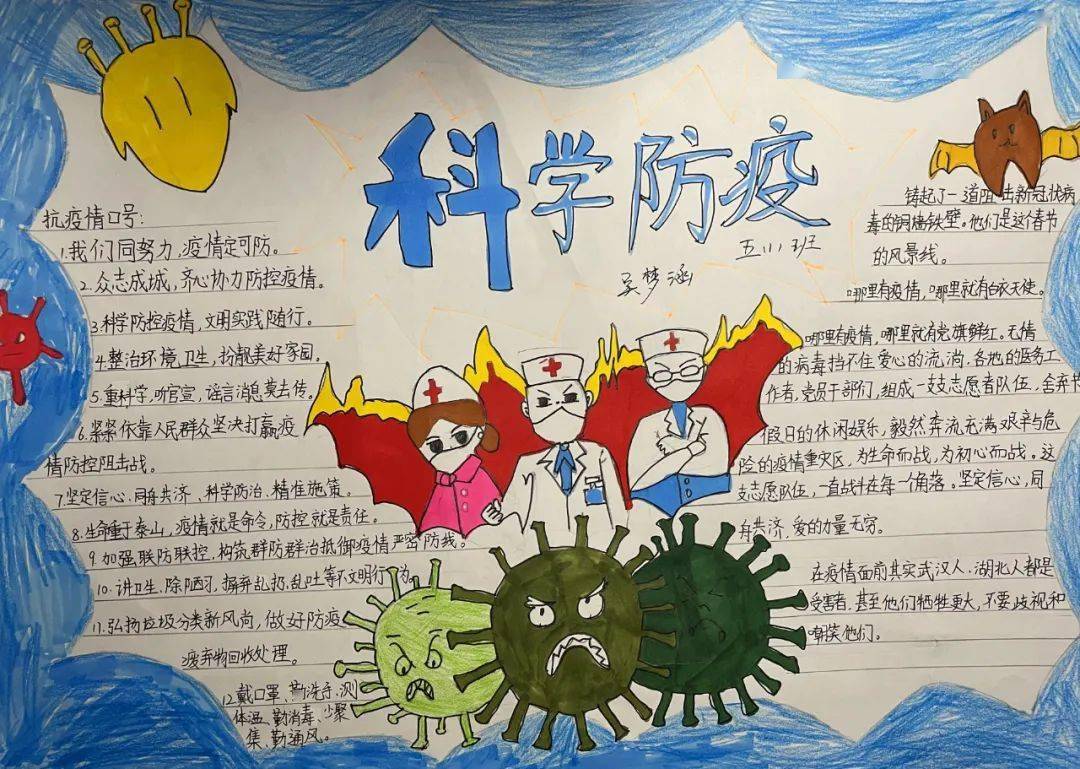 科学防疫
五(1)班
吴梦涵
抗疫情口号:
1.我们同努力,疫情定可防。
2.众志成城,齐心协力防控疫情。
3.科学防控疫情,文明实践随行。
4.整治环境卫生,扮靓美好家园。
5.重科学,听官宣,谣言消息莫去传。
6.紧紧依靠人民群众坚决打赢疫
情防控阻击战。
7.坚定信心、同舟共济、科学防治、精准施策。
8.生命重于泰山,疫情就是命令,防控就是责任。
9.加强联防联控,构筑群防群治抵御疫情严密防线。
10.讲卫生,除陋习,摒弃乱扔、乱吐等不文明行为。
11.弘扬垃圾分类新风尚,做好防疫
废弃物回收处理。
12.戴口罩、勤洗手、测
体温、勤消毒、少聚
集、勤通风。
铸起了一道阻击新冠状病
毒的铜墙铁壁。他们是这个春节
的风景线。
哪里有疫情,哪里就有白衣天使。
哪里有疫情,哪里就有党旗鲜红。无情
的病毒挡不住爱心的流淌,各地的医务工
作者,党员干部们,组成一支支志愿者队伍,舍弃节
假日的休闲娱乐,毅然奔流充满艰辛与危
险的疫情重灾区,为生命而战,为初心而战。这
支志愿队伍,一直战斗在每一个角落。坚定信心,同
舟共济,爱的力量无穷。
在疫情面前其实武汉人、湖北人都是
受害者,甚至他们牺牲更大,不要歧视和
嘲笑他们。